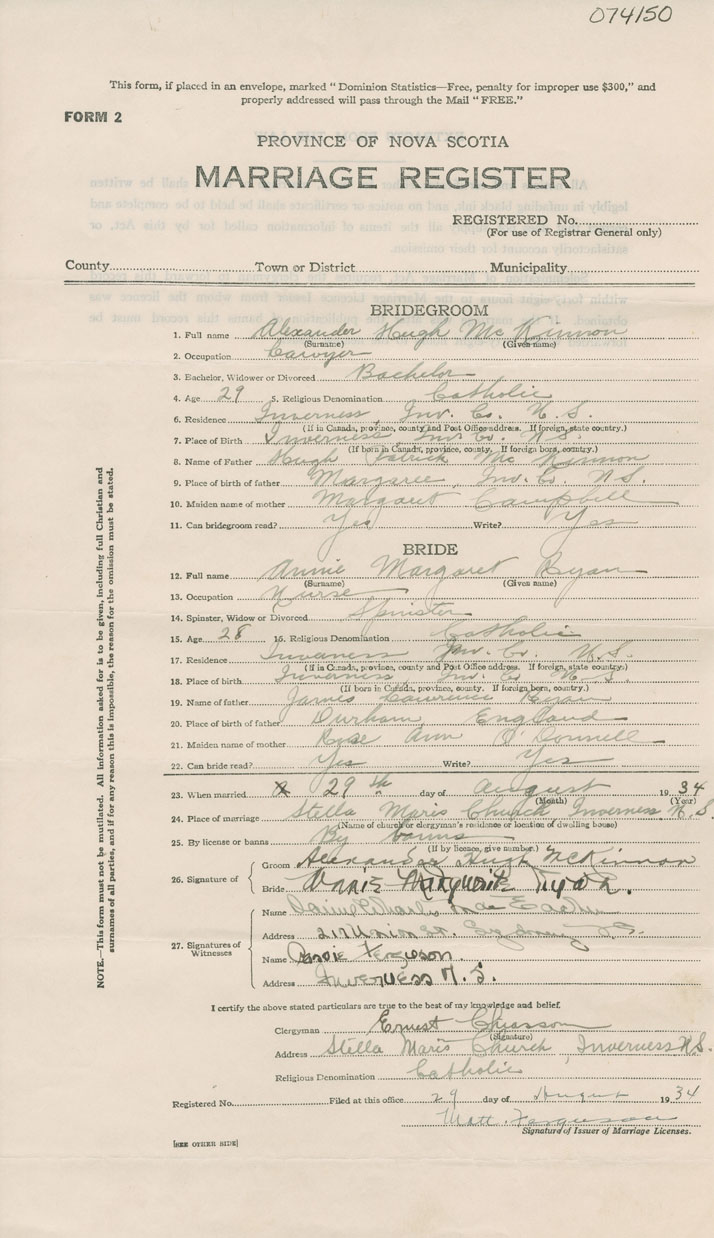 074150
This form, if placed in an envelope, marked "Dominion Statistics—Free, penalty for improper use $300," and
properly addressed will pass through the Mail "FREE."
FORM 2
PROVINCE OF NOVA SCOTIA
MARRIAGE REGISTER
REGISTERED No.
(For use of Registrar General only)
County Town or District Municipality
BRIDEGROOM
1. Full name Alexander Hugh Mc Kinnon
(Surname) (Given name)
2. Occupation Lawyer
3. Bachelor, Widower or Divorced Bachelor
4. Age 29 5. Religious Denomination Catholic
6. Residence Inverness Inv. Co. N.S.
(If in Canada, province, county and Post Office address. If foreign, state country.)
7. Place of Birth Inverness Inv. Co. N.S.
(If born in Canada, province, county. If foreign born, country.)
8. Name of Father Hugh Patrick Mc Kinnon
9. Place of birth of father Margaree, Inv. Co. N.S.
10. Maiden name of mother Margaret Campbell
11. Can bridegroom read? Yes Write? Yes
BRIDE
12. Full name Annie Margaret Ryan
(Surname) (Given name)
13. Occupation Nurse
14. Spinster, Widow or Divorced Spinster
15. Age 28 16. Religious Denomination Catholic
17. Residence Inverness Inv. Co. N.S.
(If in Canada, province, county and Post Office address. If foreign, state country.)
18. Place of birth Inverness Inv. Co. N.S.
(If born in Canada, province, county. If foreign born, country.)
19. Name of father James Lawrence Ryan
20. Place of birth of father Durham, England
21. Maiden name of mother Rose Ann O'Donnell
22. Can bride read? Yes Write? Yes
23. When married 29th day of August 1934
(Month) (Year)
24. Place of marriage Stella Maris Church Inverness N.S.
(Name of church or clergyman's residence or location of dwelling house)
25. By license or banns By banns
(If by licence, give number.)
26. Signature of Groom Alexander Hugh McKinnon
Bride Annie Marguerite Ryan.
27. Signatures of Witnesses
Name
Address
Name Ferguson.
Address Inverness N.S.
I certify the above stated particulars are true to the best of my knowledge and belief.
Clergyman Ernest Chiasson
(Signature)
Address Stella Maris Church, Inverness N.S.
Religious Denomination Catholic
Registered No. Filed at this office 29 day of August 1934
Matt. Ferguson
Signature of Issuer of Marriage Licenses.
[SEE OTHER SIDE]
NOTE.—This form must not be mutilated. All information asked for is to be given, including full Christian and
surnames of all parties, and if for any reason this is impossible, the reason for the omission must be stated.